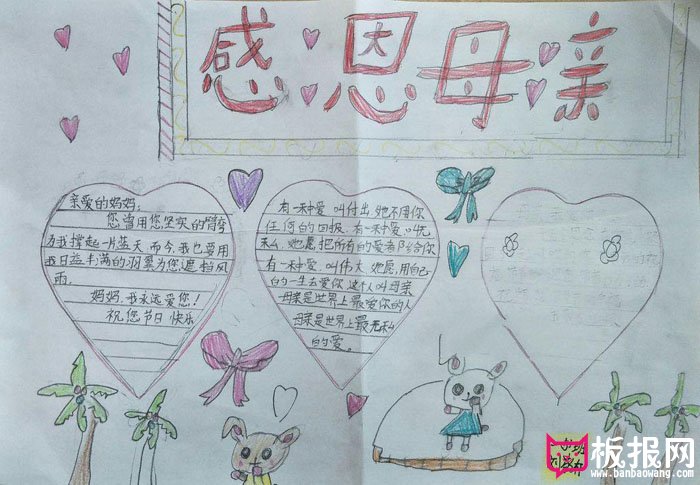 感恩母亲
亲爱的妈妈:
您曾用您坚实的臂弯
为我撑起一片蓝天而今,我也要用
我日益丰满的羽翼为您遮挡风
雨.
妈妈,我永远爱您!
祝您节日快乐
有一种爱叫付出,她不用你
任何的回报.有一种爱叫无
私,她愿把所有的爱都给你
有一种爱,叫伟大她愿,用自己
的一生去爱你这个人叫母亲
母亲是世界上最爱你的人
母亲是世界上最无私
的爱。
板报网
www.banbaowang.com